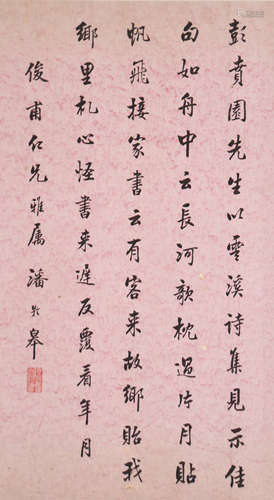 彭賁園先生以雲溪詩集見示佳
句如舟中云長河歌枕過片月貼
帆飛接家書云有客来故鄉貽我
鄉里札心怪書来遲反覆看年月
俊甫仁兄雅屬 潘齡皋